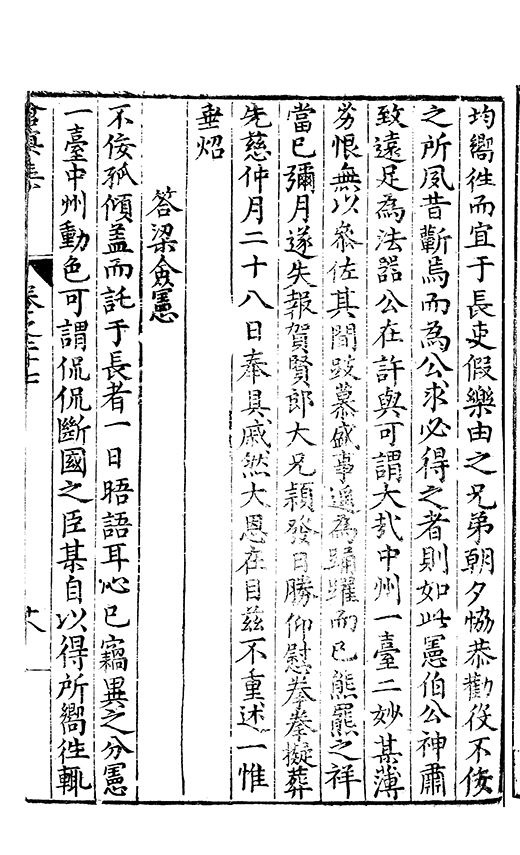 均嚮徃而宜于長吏假樂由之兄弟朝夕恊恭勸役不佞
之所夙昔蘄焉而為公求必得之者則如此憲伯公神肅
致逺足為法器公在許與可謂大㢤中州一臺二妙某薄
劣恨無以叅佐其間跂慕盛事遥為踊躍而已熊羆之祥
當已彌月遂失報賀賢郎大兄穎發日勝仰慰拳拳擬葬
先慈仲月二十八日奉具戚然大恩在目兹不重述一惟
垂炤
答梁僉憲
不佞孤傾盖而託于長者一日晤語耳心已竊異之分憲
一臺中州動色可謂侃侃斷國之臣某自以得所嚮徃輒
卷之二十七
十八